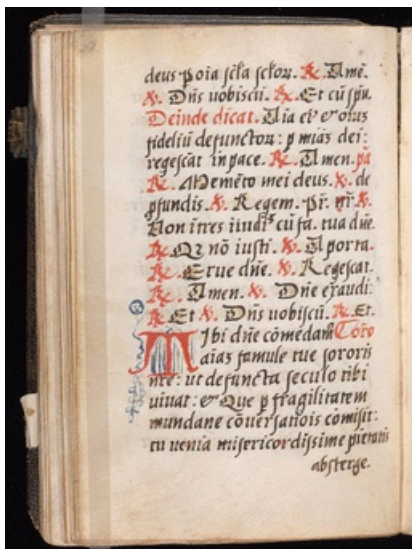 deus p oĩa sc̃la sc̃loꝝ. ℟. Amẽ.
℣. Dñs uobiscũ. ℟. Et cũ sp̃u.
Deinde dicat. Aĩa eiꝰ & oĩus
fideliũ defunctoꝝ: p miãz dei:
reqescãt in pace. ℟. Amen.
℟. Memẽto mei deus. ℣. de
pfundis. ℣. Reqem. Pr̃. nr̃. ℣.
Non ĩtres ĩ iudiº cũ fa. tua dñe.
℟. Qz nõ iusti. ℣. A porta.
℟. Erue dñe. ℣. Reqescãt.
℟. Amen. ℣. Dñe exaudi:
℟. Et ℣. Dñs uobiscũ. ℟. Et.
Tibi dñe cõmedam⁹ Oro
aiãz famule tue sororis
nr̃e: ut defuncta seculo tibi
uiuat: & Que p fragilitatem
mundane cõuersatiõis cõmisit:
tu uenia misericordissime pietatis
absterge.